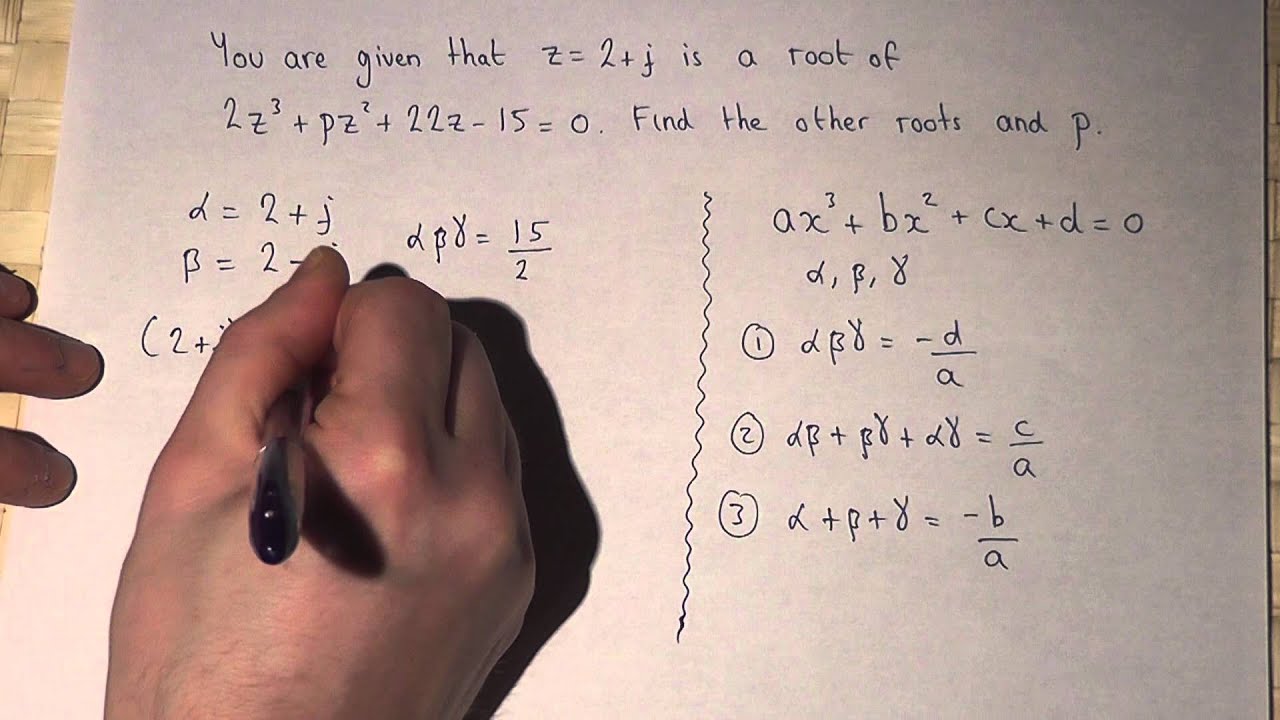 You are given that z = 2+j is a root of
2z³ + pz² + 22z - 15 = 0. Find the other roots and p.
α = 2 + j
β = 2 -
αβγ = 15/2
(2+
ax³ + bx² + cx + d = 0
α, β, γ
① αβγ = -d/a
② αβ + βγ + αγ = c/a
③ α + β + γ = -b/a